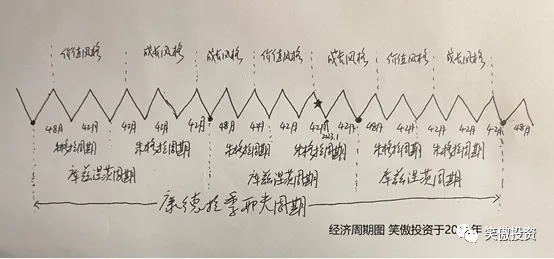 价值风格 成长风格 成长风格 价值风格 成长风格 价值风格 成长风格
2023.1
48月 42月 42月 42月 48月 42月 42月 42月 42月 48月 42月 42月 42月 48月
朱格拉周期 朱格拉周期 朱格拉周期 朱格拉周期 朱格拉周期 朱格拉周期
库兹涅茨周期 库兹涅茨周期 库兹涅茨周期
康德拉季耶夫周期
经济周期图 笑傲投资于20 年
笑傲投资